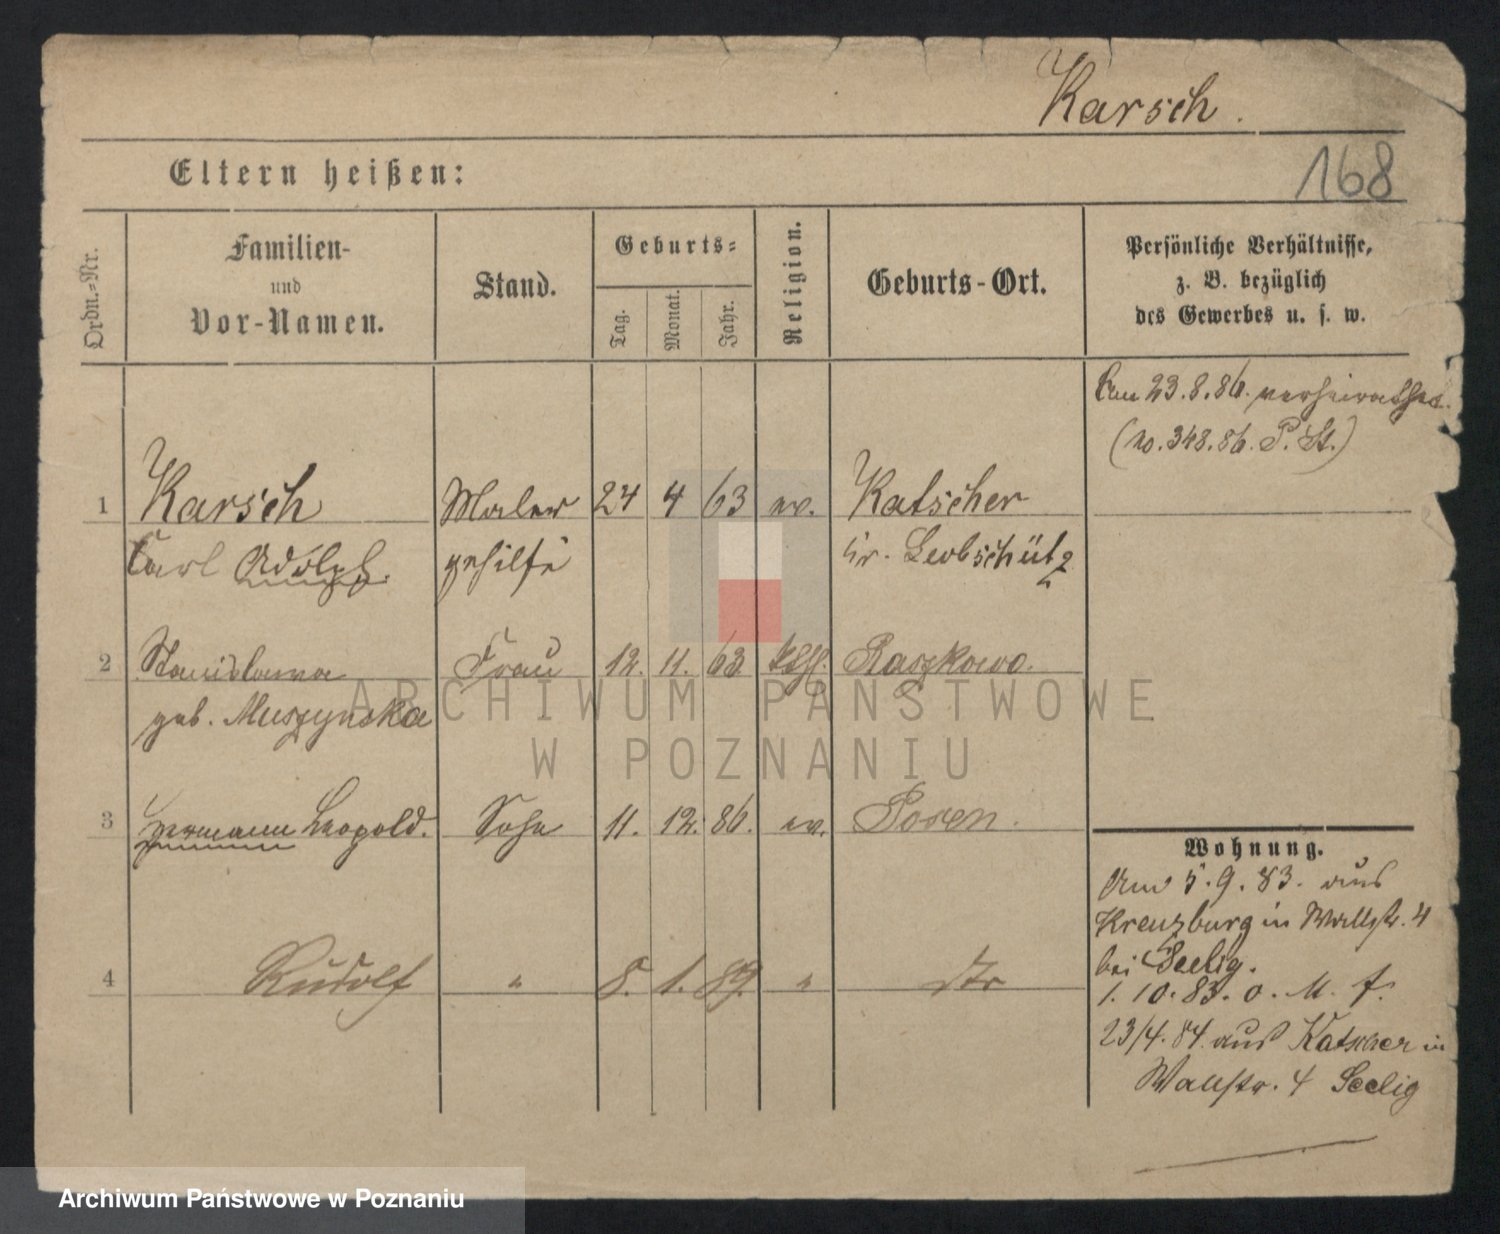 Karsch.
168
Eltern heißen:
Ordn.-Nr.
Familien-
und
Vor-Namen.
Stand.
Geburts-
Tag.
Monat.
Jahr.
Religion.
Geburts-Ort.
Persönliche Verhältnisse,
z. B. bezüglich
des Gewerbes u. s. w.
Am 23.8.86. verheirathet.
(No. 348.86. P. St.)
1 Karsch Maler 24 4 63 ev. Katscher
Carl Adolph. gehilfe Kr. Leobschütz
2 Stanislawa Frau 12. 11. 63 kth. Raszkowo.
geb. Muszynska
3 Hermann Leopold. Sohn 11. 12. 86. ev. Posen.
4 Rudolf " 8. 1. 89. " dto
Wohnung.
Am 5.9.83. aus
Kreuzburg in Wallstr. 4
bei Seelig.
1.10.83. o. M. f.
23/4.84. aus Katscher in
Wallstr. 4 Seelig
ARCHIWUM PAŃSTWOWE
W POZNANIU
Archiwum Państwowe w Poznaniu